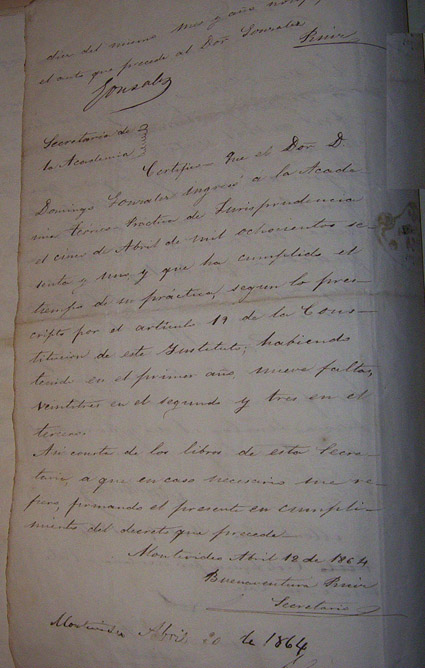 dia del mismo mes y año notif
el auto que precede al Don Gonzalez
Ruiz
Gonzalez
Secretaria de
la Academia
Certifico que el Dor. D.
Domingo Gonzalez ingresó a la Acade
mia Teorico-Practica de Jurisprudencia
el cinco de Abril de mil ochocientos se
senta y uno, y que ha cumplido el
tiempo de su práctica, segun lo pres-
cripto por el artículo 19 de la Cons-
titucion de este Instituto; habiendo
tenido en el primer año nueve faltas,
veintitres en el segundo y tres en el
tercero.
Asi consta de los libros de esta Secre-
taria, a que en caso necesario me re-
fiero, firmando el presente en cumpli-
miento del decreto que precede.
Montevideo Abril 18 de 1864
Buenaventura Ruiz
Secretario
Montevideo Abril 20 de 1864